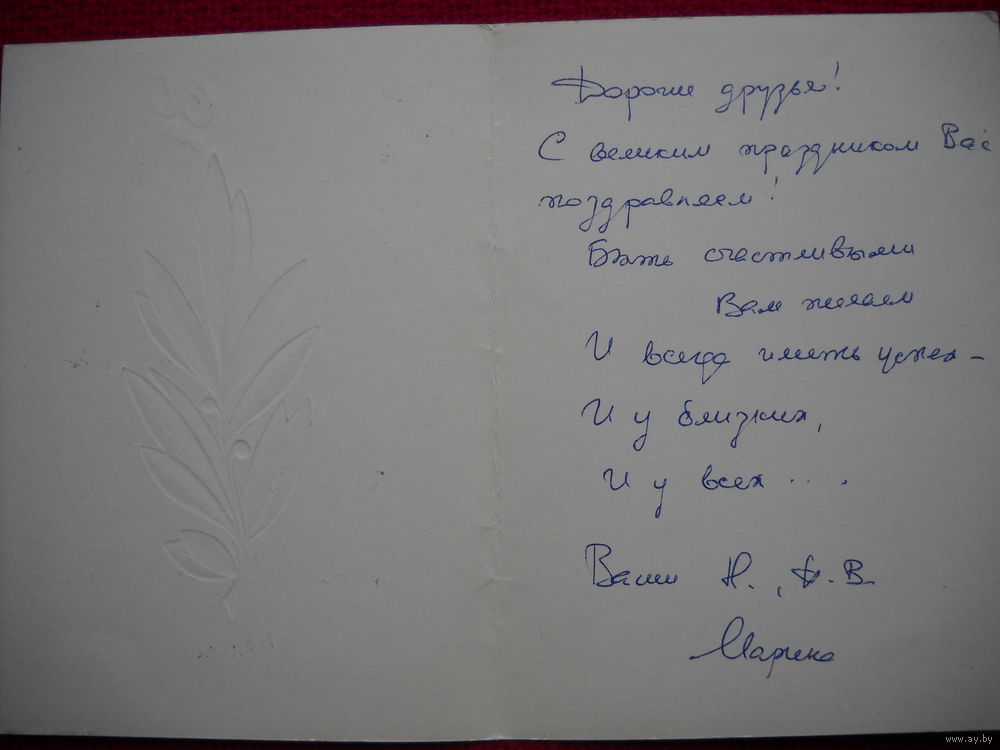 Дорогие друзья!
С великим праздником Вас
поздравляем!
Быть счастливыми
Вам желаем
И всегда иметь успех –
И у близких,
И у всех ....
Ваши Н., В.
Марина
www.ay.by